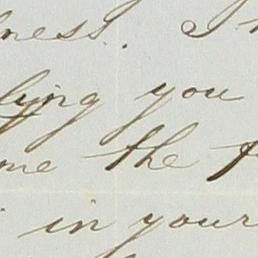 ness. I
lying you
me the
in your